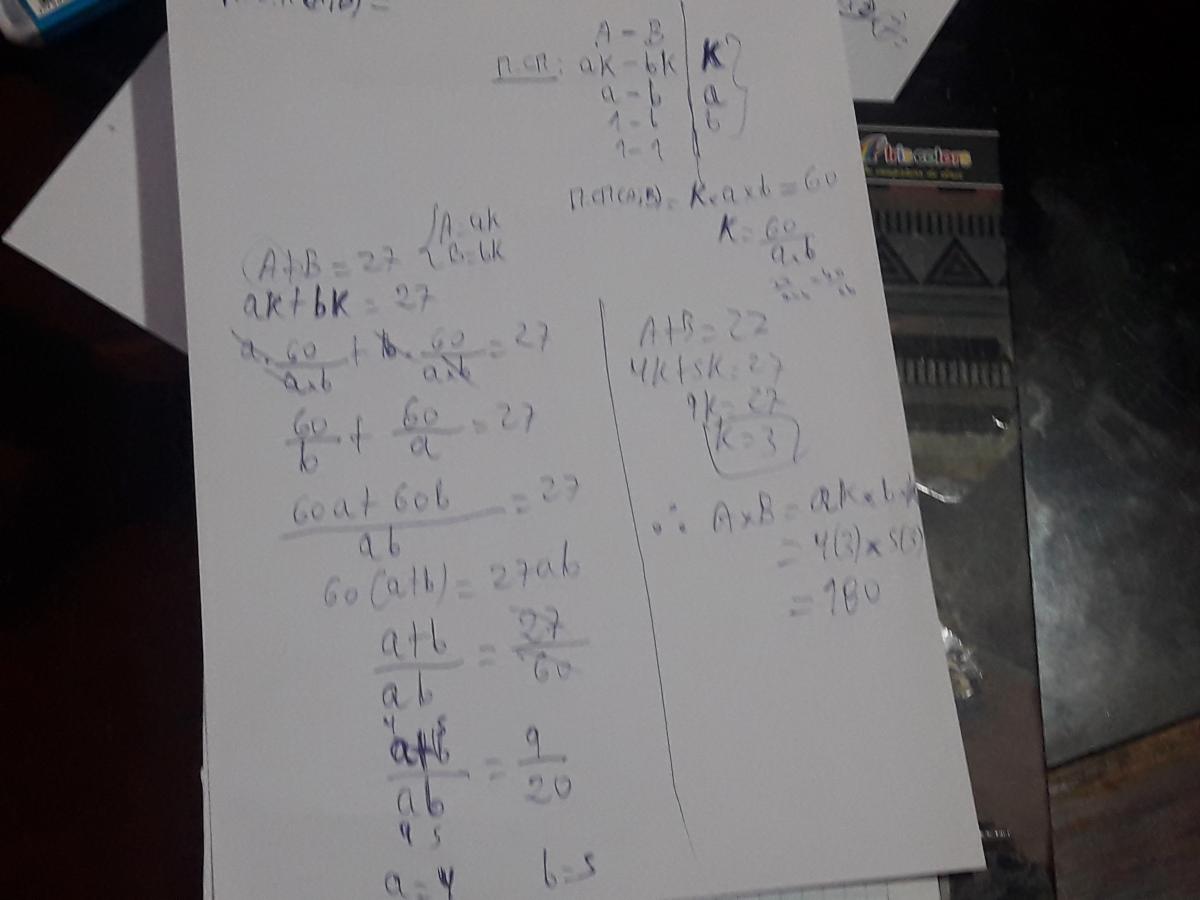 A - B
M.CM: ak - bk | K
a - b | a
1 - b | b
1 - 1
M.CM(A,B) = K×a×b = 60
K = 60/a×b
A+B = 27 { A=ak
B=bk
ak+bk = 27
a·60/a×b + b·60/a×b = 27
60/b + 60/a = 27
60a+60b/ab = 27
60(a+b) = 27ab
a+b/ab = 27/60
4 5
a+b/ab = 9/20
4 5
a=4 b=5
A+B=27
4k+5k=27
9k=27
k=3
∴ A×B = ak×b×k
= 4(3)×5(3)
= 180
iris colors